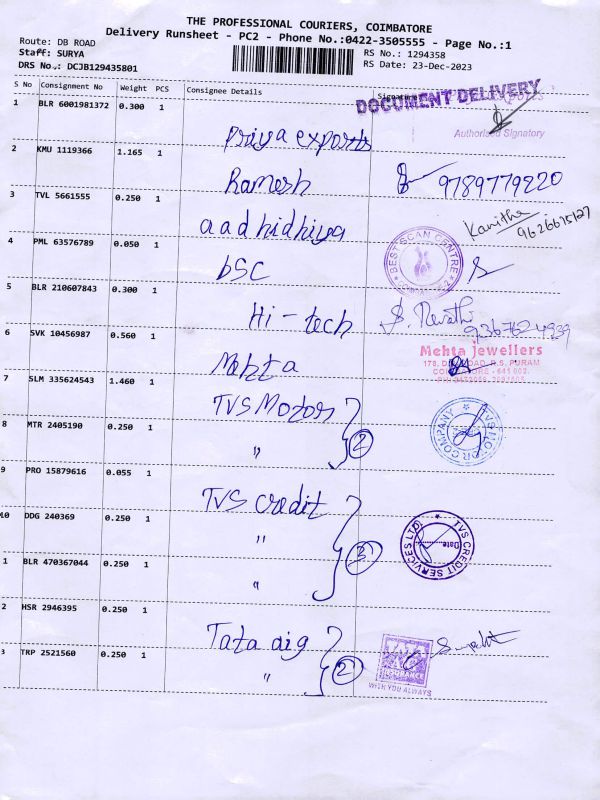 THE PROFESSIONAL COURIERS, COIMBATORE
Delivery Runsheet - PC2 - Phone No.:0422-3505555 - Page No.:1
Route: DB ROAD
Staff: SURYA
DRS No.: DCJB129435801
RS No.: 1294358
RS Date: 23-Dec-2023
S No Consignment No Weight PCS Consignee Details Signature
DOCUMENT DELIVERY
Authorised Signatory
1 BLR 6001981372 0.300 1 Priya exports
2 KMU 1119366 1.165 1 Ramesh 9789779220
3 TVL 5661555 0.250 1 aadhidhiya Kavitha 9626615127
4 PML 63576789 0.050 1 bSC BEST SCAN CENTRE
5 BLR 210607843 0.300 1 Hi-tech S. Revathi 9367624939
6 SVK 10456987 0.560 1 Mehta Mehta Jewellers
R.S. PURAM
COIMBATORE - 641 002.
7 SLM 335624543 1.460 1 TVS Motors TVS MOTOR COMPANY
8 MTR 2405190 0.250 1 " 2
9 PRO 15879616 0.055 1 TVS credit
10 DDG 240369 0.250 1 " TVS CREDIT SERVICES LTD. Date
1 BLR 470367044 0.250 1 " 3
2 HSR 2946395 0.250 1 Tata aig INSURANCE
3 TRP 2521560 0.250 1 " 2 WITH YOU ALWAYS